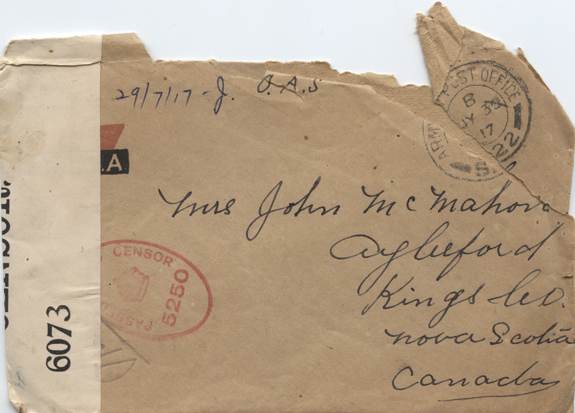 29/7/17 - J. O.A.S
ARMY POST OFFICE
B
JY 30
17
S 22
.A
Mrs John McMahon
Aylesford
Kings Co.
Nova Scotia
Canada
CENSOR
PASS
5250
6073